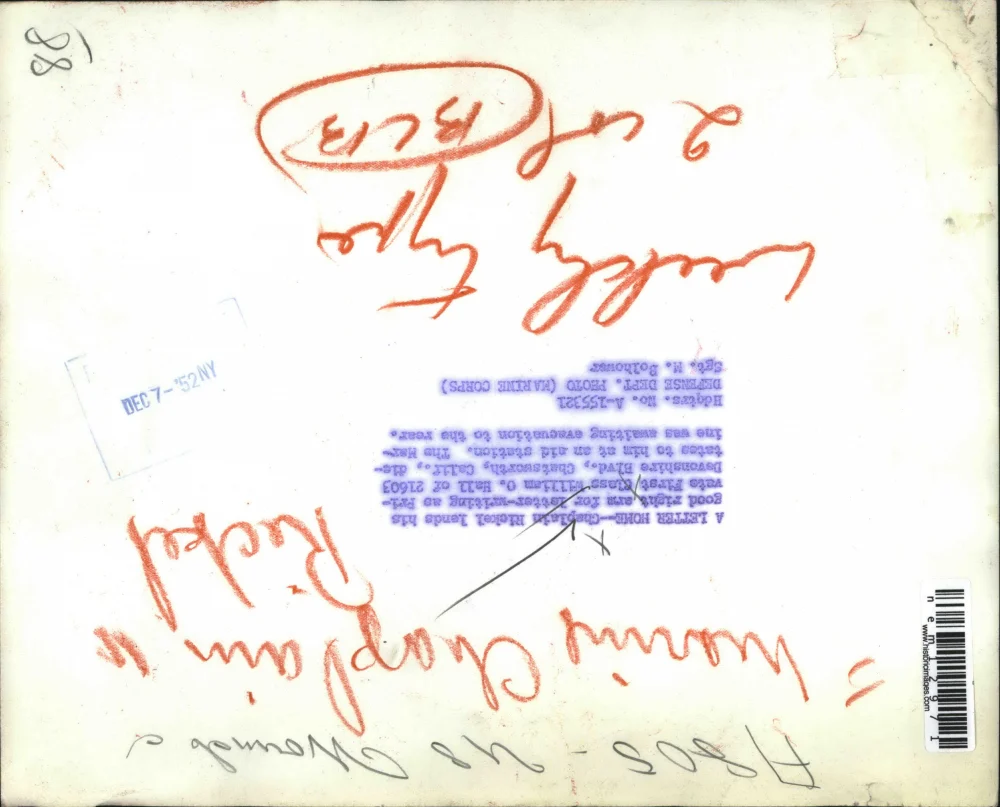 A805 - US Wounded
"Marine Chaplain"
Rickel
A LETTER HOME--Chaplain Rickel lends his
good right arm for letter-writing as Pri-
vate First Class William O. Hall of 21603
Devonshire Blvd., Chatsworth, Calif., dic-
tates to him at an aid station. The Mar-
ine was awaiting evacuation to the rear.
Hdqtrs. No. A-155321
DEFENSE DEPT. PHOTO (MARINE CORPS)
Sgt. M. Bolhower
DEC 7-'52NY
weekly type
2 col
BCB
88
nem12971
www.historicimages.com